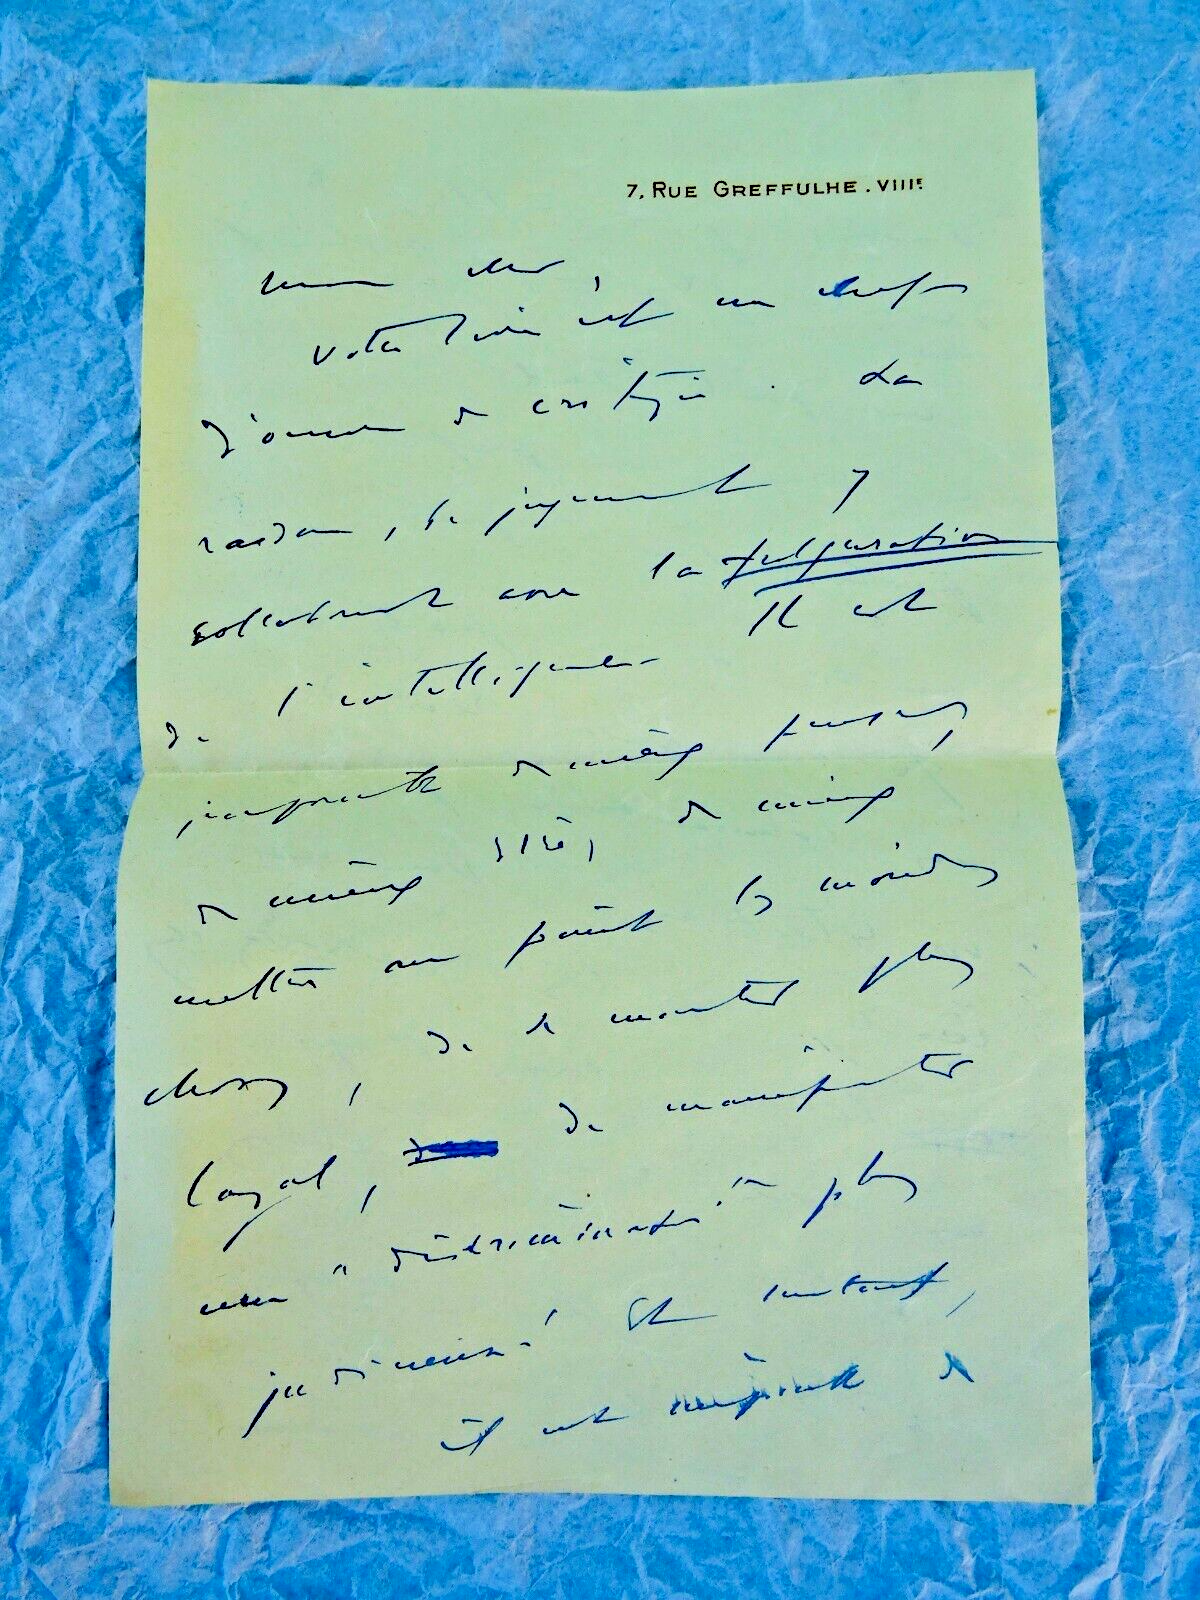 7, RUE GREFFULHE . VIIIE
mon cher,
votre livre est un chef
d'œuvre de critique. La
raison, le jugement y
collaborent avec la fulguration
de l'intelligence. Il est
impossible de mieux penser,
de mieux dire, de mieux
mettre au point les moindres
choses, de se montrer plus
loyal, de manifester
une "discrimination" plus
judicieuse! Et surtout,
il est impossible de